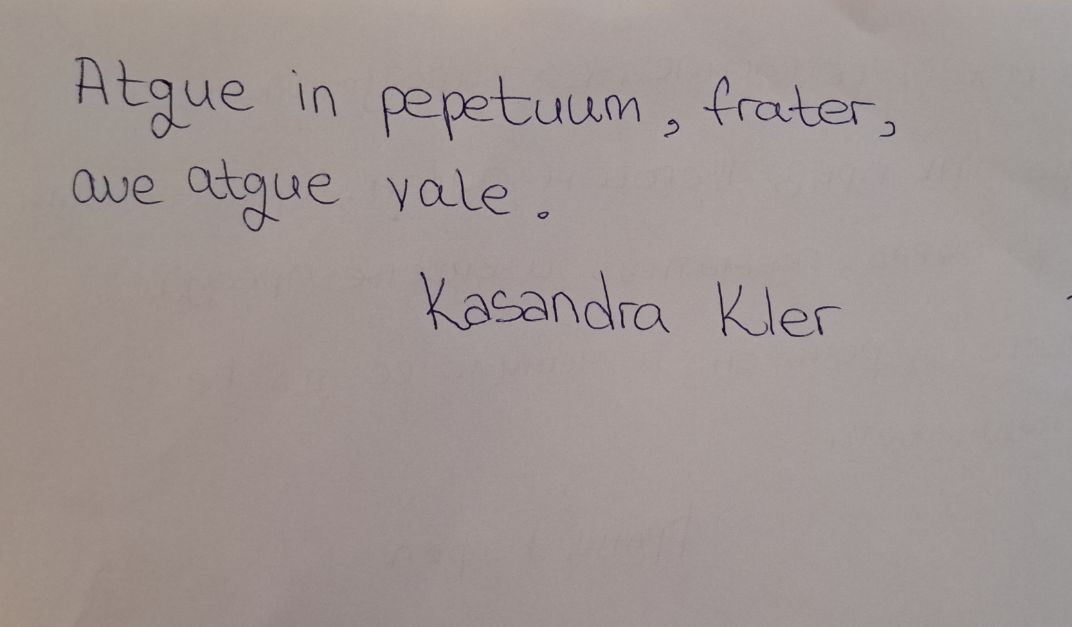 Atgue in pepetuum, frater,
ave atgue vale.
Kasandra Kler